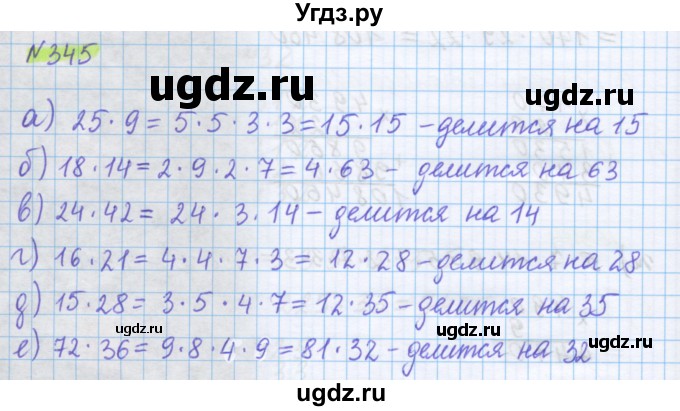 Угдз.ру
№345
ugdz.ru
ugdz.ru
а) 25·9=5·5·3·3=15·15 –делится на 15
б) 18·14=2·9·2·7=4·63– делится на 63
в) 24·42= 24·3·14–делится на 14
г) 16·21=4·4·7·3= 12·28–делится на 28
д) 15·28= 3·5·4·7=12·35–делится на 35
ugdz.ru
ugdz.ru
е) 72·36=9·8·4·9=81·32–делится на 32
ugdz.ru